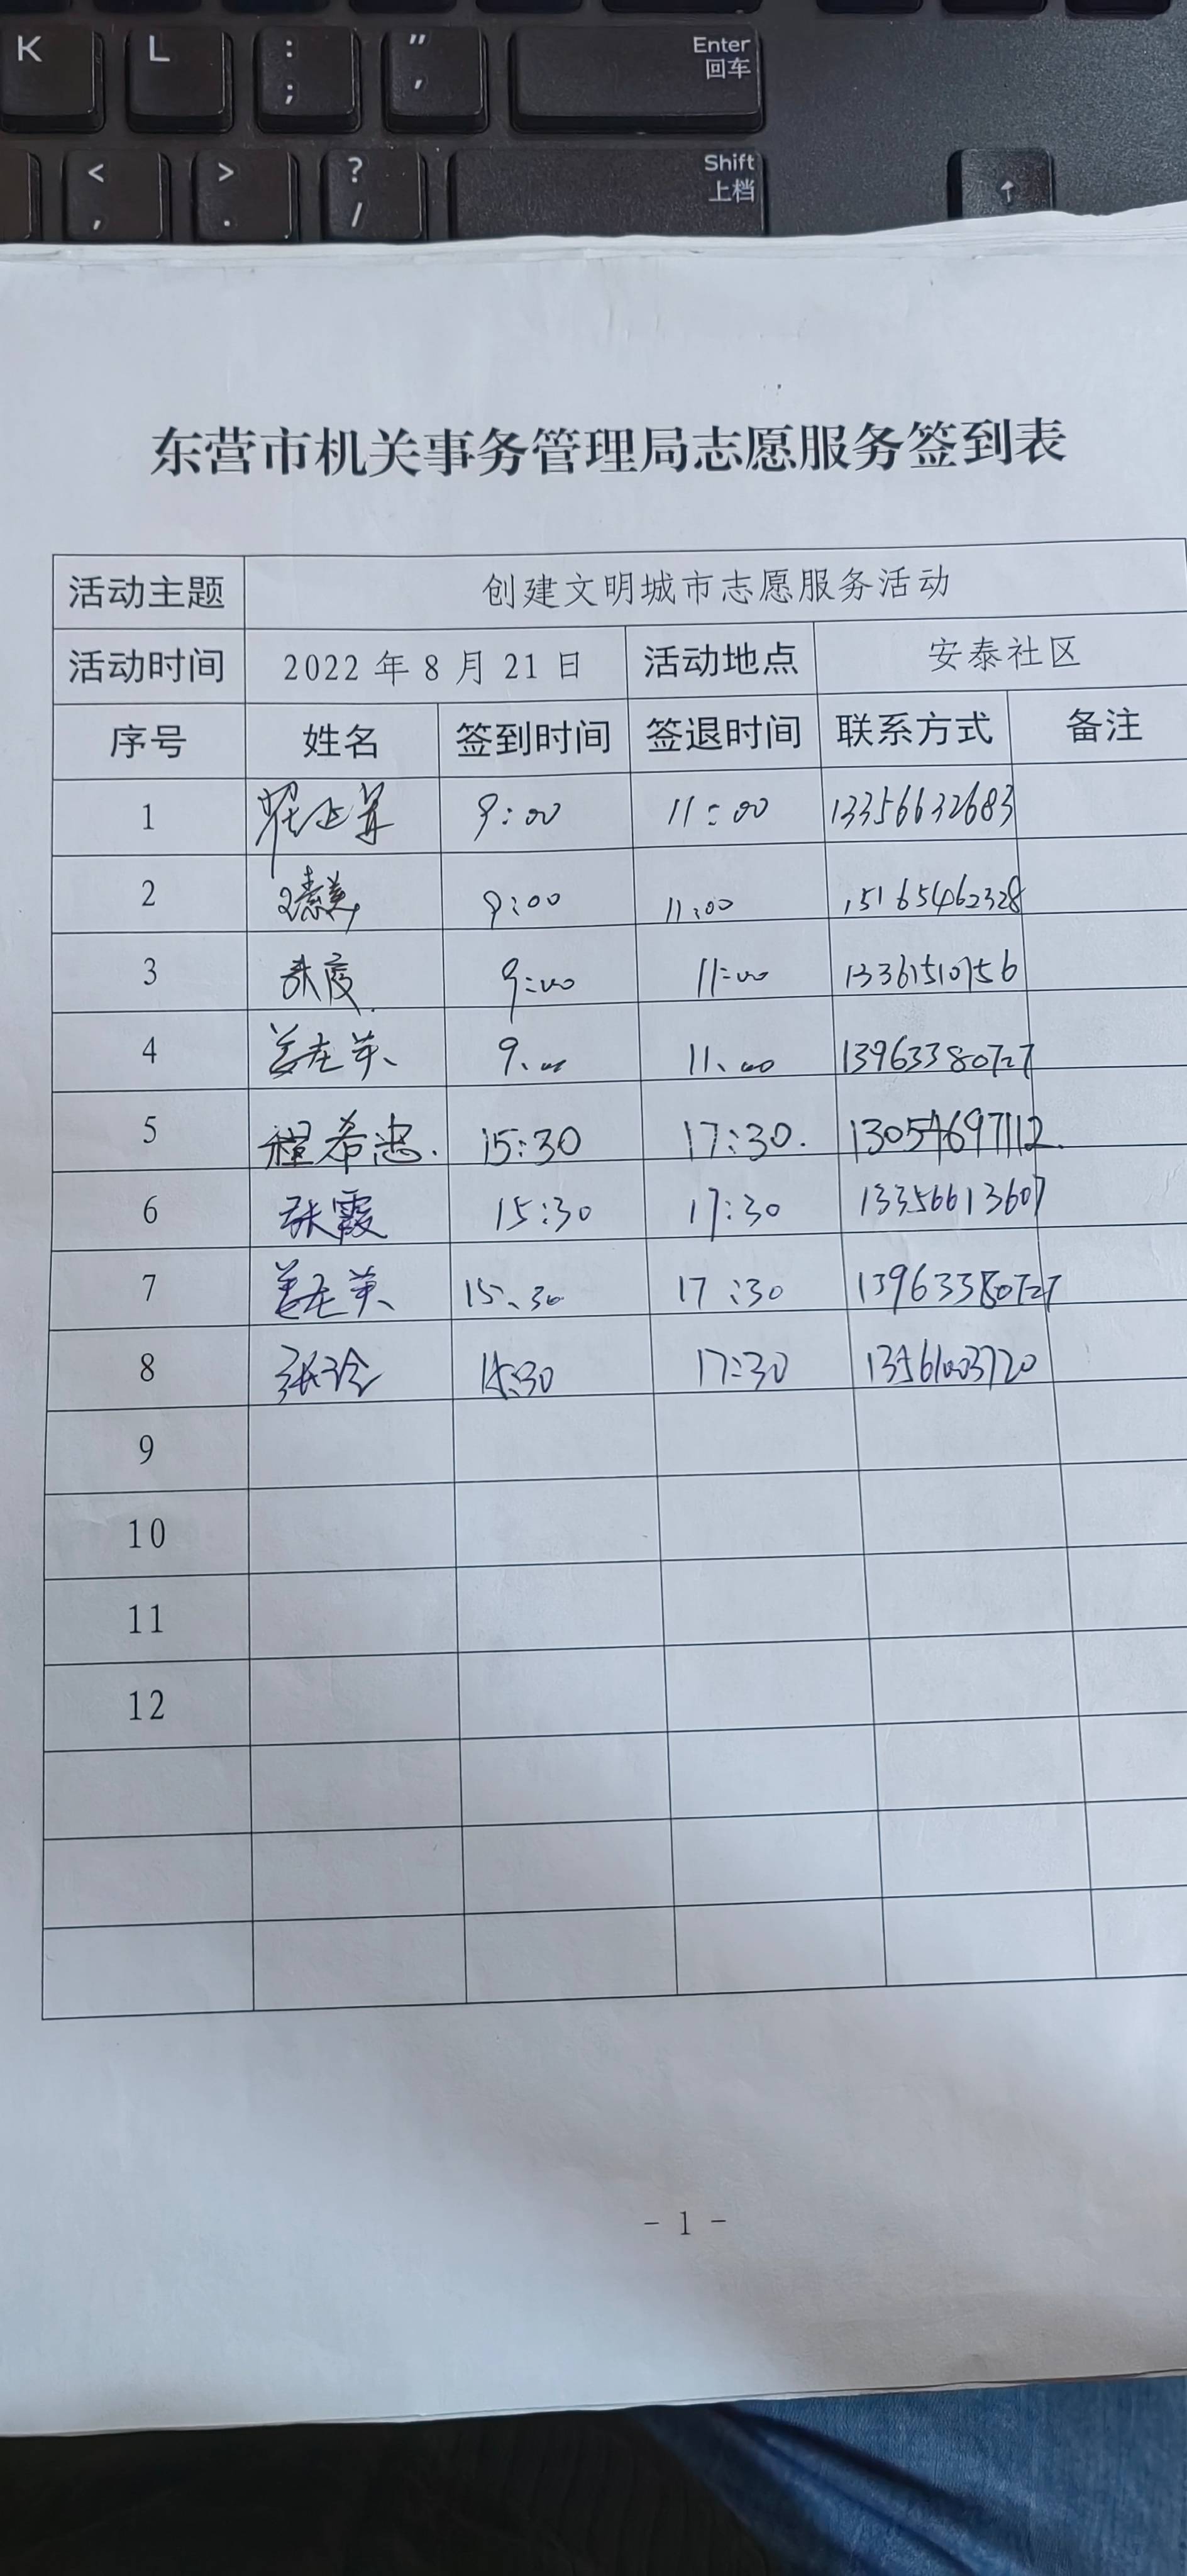 K L : ; " ' Enter 回车
< , > . ? / Shift 上档 ↑
东营市机关事务管理局志愿服务签到表
活动主题 创建文明城市志愿服务活动
活动时间 2022 年 8 月 21 日 活动地点 安泰社区
序号 姓名 签到时间 签退时间 联系方式 备注
1 9:00 11:00 13356632683
2 9:00 11:00 15165462328
3 9:00 11:00 13361510756
4 9:00 11:00 13963380727
5 程希忠 15:30 17:30 13054697112
6 张霞 15:30 17:30 13356613607
7 15:30 17:30 13963380727
8 张玲 15:30 17:30 13561003720
9
10
11
12
- 1 -